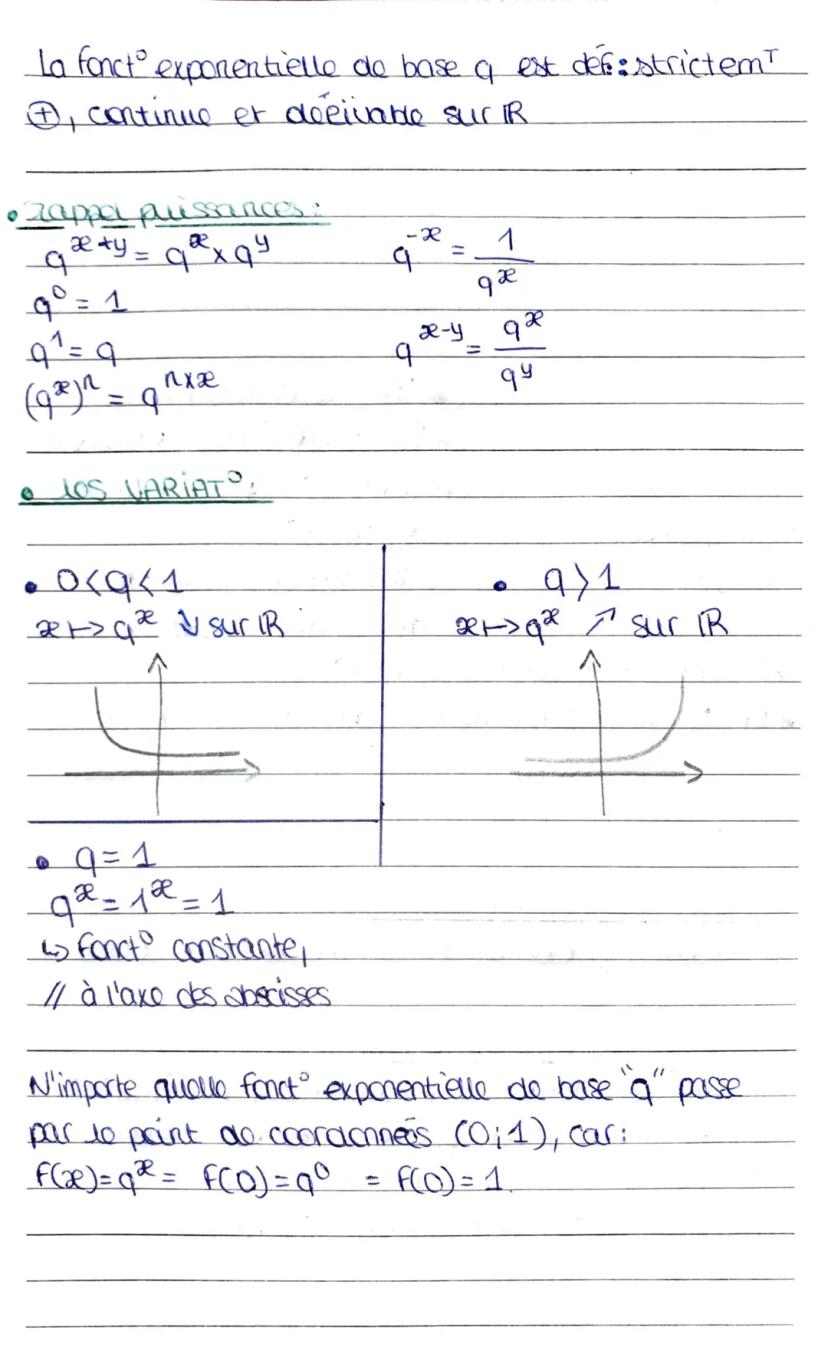 La fonct° exponentielle de base q est déf: strictemᵀ
⊕, continue et dérivable sur ℝ
• rappel puissances:
q^(x+y) = q^x × q^y    q^(-x) = 1/q^x
q^0 = 1
q^1 = q    q^(x-y) = q^x/q^y
(q^x)^n = q^(n×x)
• les VARIAT°:
• 0<q<1    • q>1
x↦q^x ↘ sur ℝ    x↦q^x ↗ sur ℝ
• q = 1
q^x = 1^x = 1
↳ fonct° constante,
// à l'axe des abscisses
N'importe quelle fonct° exponentielle de base "q" passe
par le point de coordonnées (0;1), car:
f(x)=q^x = f(0)=q^0 = f(0)=1.